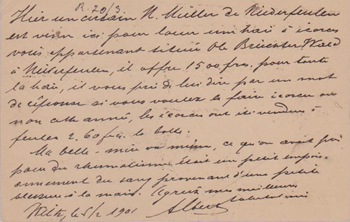 R. 20/3.
Hier un certain N. Müller de Niederfeulen
est venu ici pour louer une haie à écorces
vous appartenant située
à Niederfeulen, il offre 1500 frcs. pour toute
la haie, il vous prie de lui dire par un mot
de réponse si vous voulez la faire écorcer ou
non cette année, les écorces ont été vendues à
feulen 2.60 frs la botte.
Ma belle-mère va mieux, ce qu'on avait pris
pour du rhumatisme était un petit empoi-
sonnement du sang provenant d'une petite
blessure à la main. Agréez mes meilleures
salutations
Wiltz, 15/2 1901 Albert